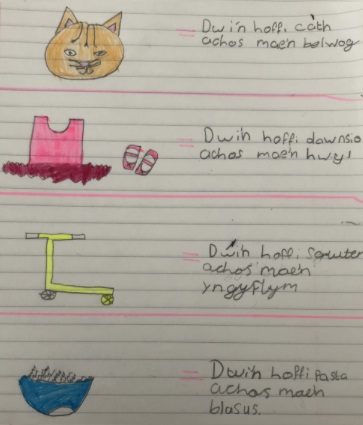 Dwi'n hoffi cath
achos mae'n belwog
Dwi'n hoffi dawnsio
achos mae'n hwyl
Dwi'n hoffi sgwter
achos mae'n
yngyflym
Dwi'n hoffi pasta
achos mae'n
blasus.